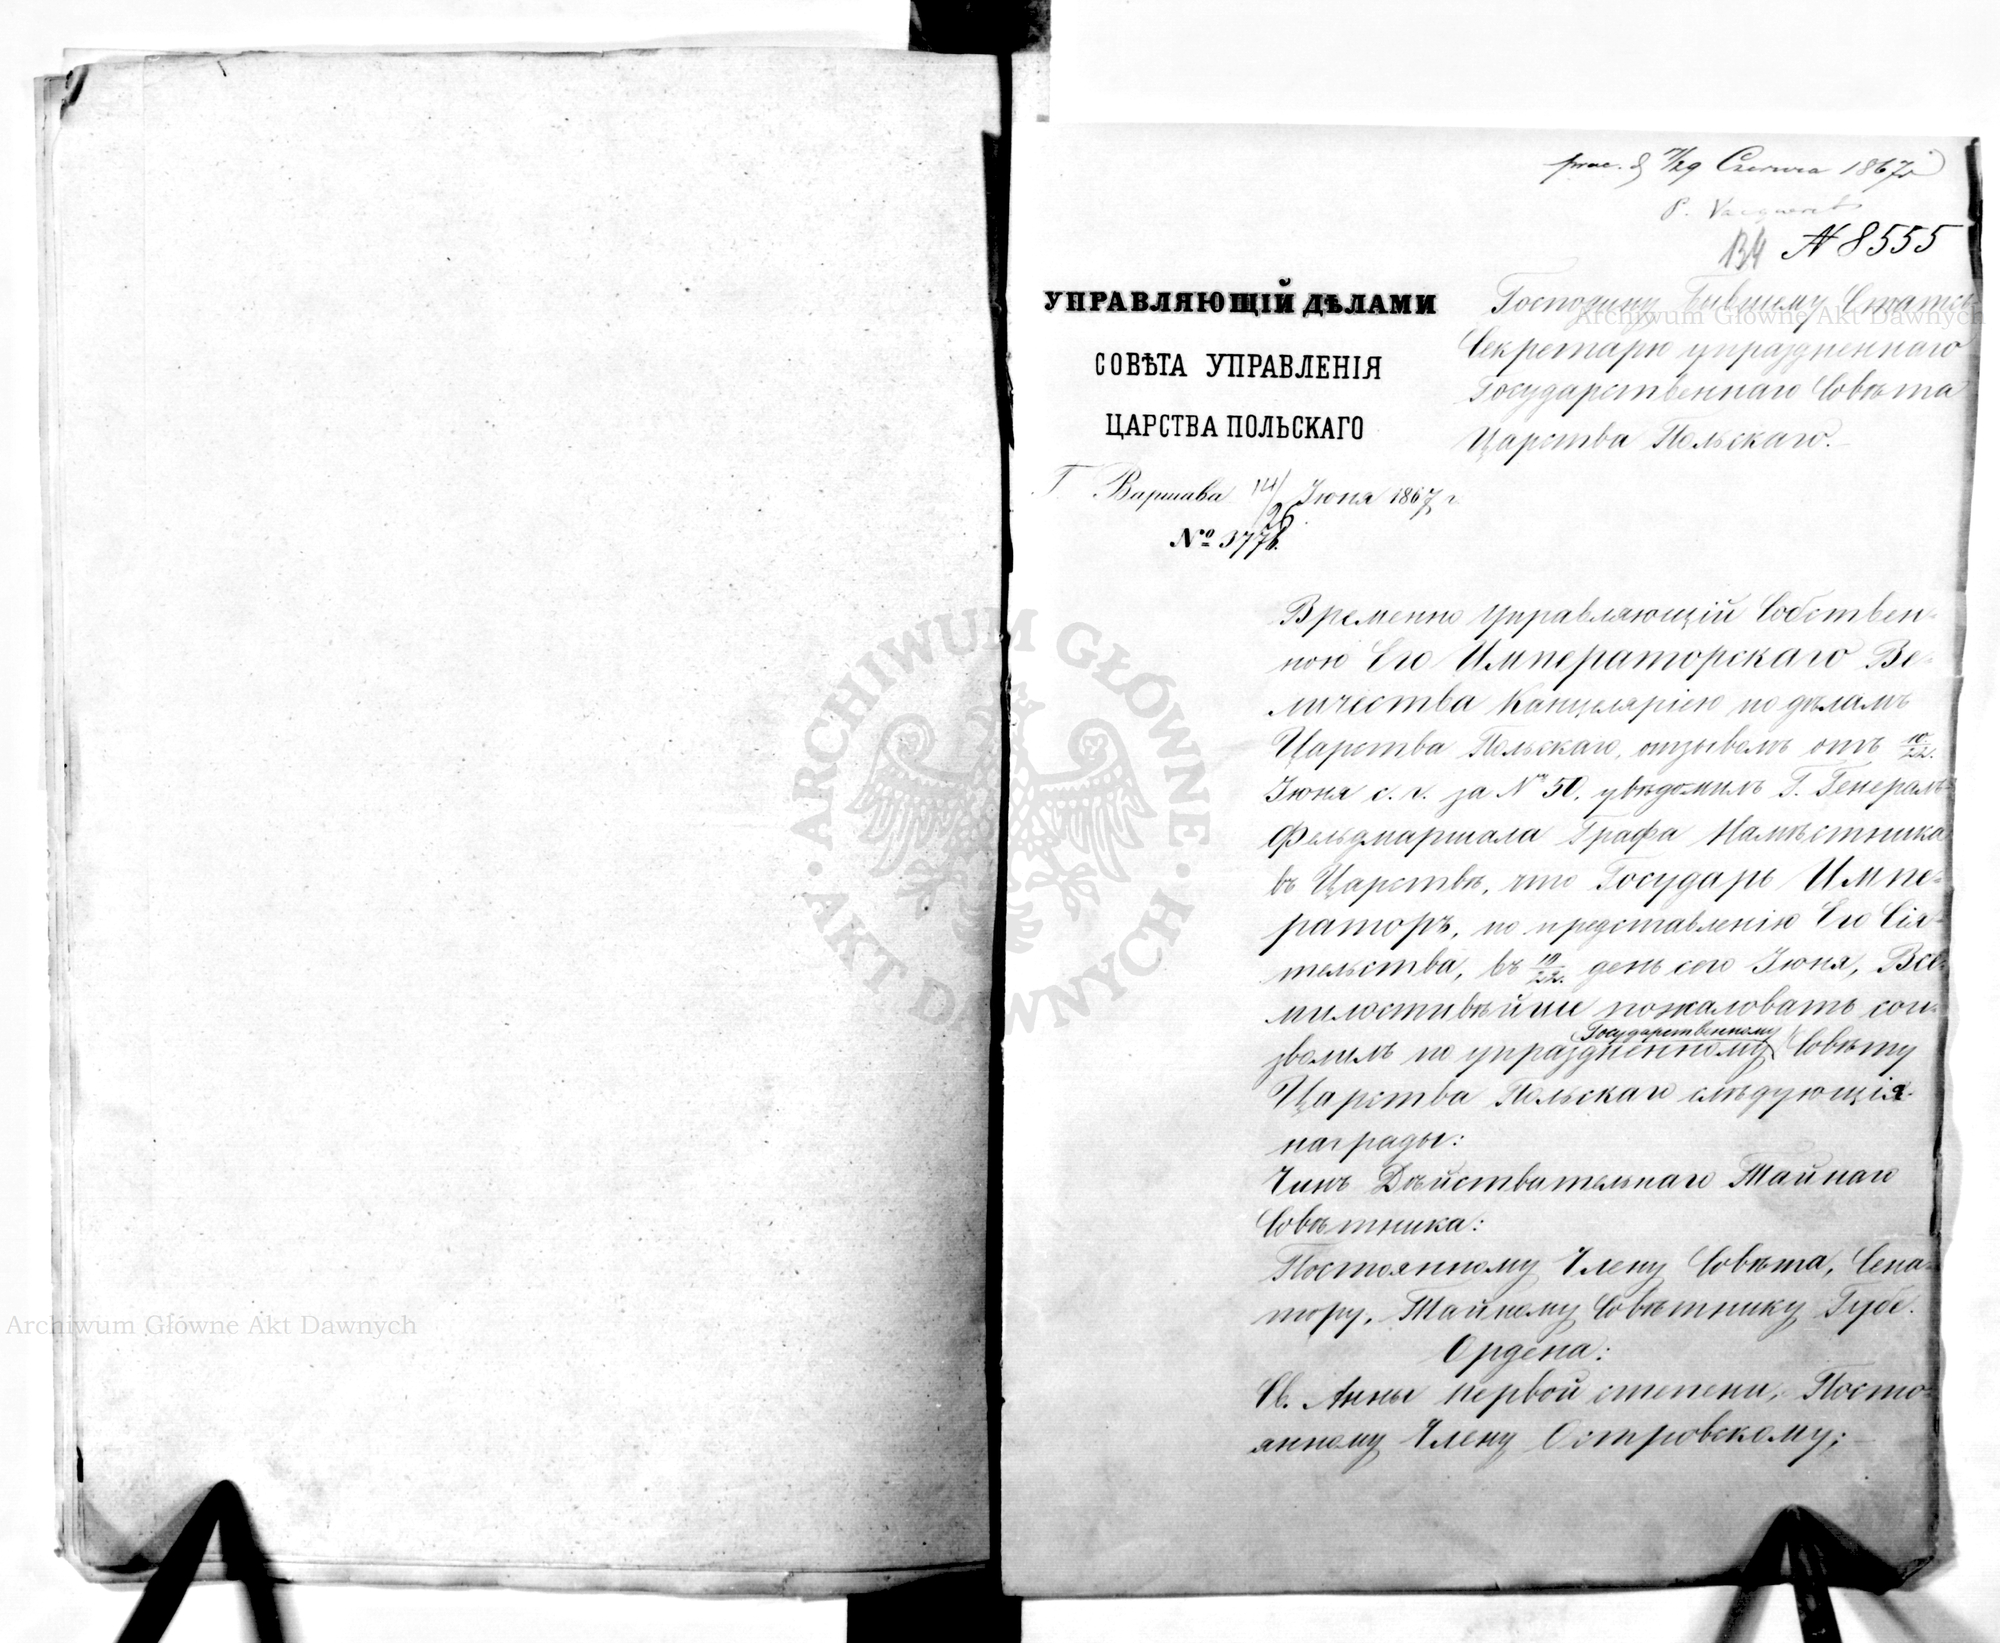 Czerwca 1867
P.
134 N 8555
УПРАВЛЯЮЩІЙ ДѢЛАМИ
СОВѢТА УПРАВЛЕНІЯ
ЦАРСТВА ПОЛЬСКАГО
Г Варшава 14/26 Іюня 1867 г.
№ 3776.
Господину Бывшему Статсъ
Секретарю упраздненнаго
Государственнаго Совѣта
Царства Польскаго.
Временно Управляющій Собствен-
ною Его Императорскаго Ве-
личества Канцеляріею по дѣламъ
Царства Польскаго, отзывомъ отъ 10/22.
Іюня с. г. за № 50, увѣдомилъ Г. Генералъ
Фельдмаршала Графа Намѣстника
въ Царствѣ, что Государь Импе-
раторъ, по представленію Его Сія-
тельства, въ 10/22. день сего Іюня, Все-
милостивѣйше пожаловать сои-
Государственному
зволилъ по упраздненному Совѣту
Царства Польскаго слѣдующія
награды:
Чинъ Дѣйствительнаго Тайнаго
Совѣтника:
Постоянному Члену Совѣта, Сена-
тору, Тайному Совѣтнику Губе.
Ордена:
Св. Анны первой степени, Посто-
янному Члену Островскому;
ARCHIWUM GŁÓWNE · AKT DAWNYCH ·
Archiwum Główne Akt Dawnych
Archiwum Główne Akt Dawnych